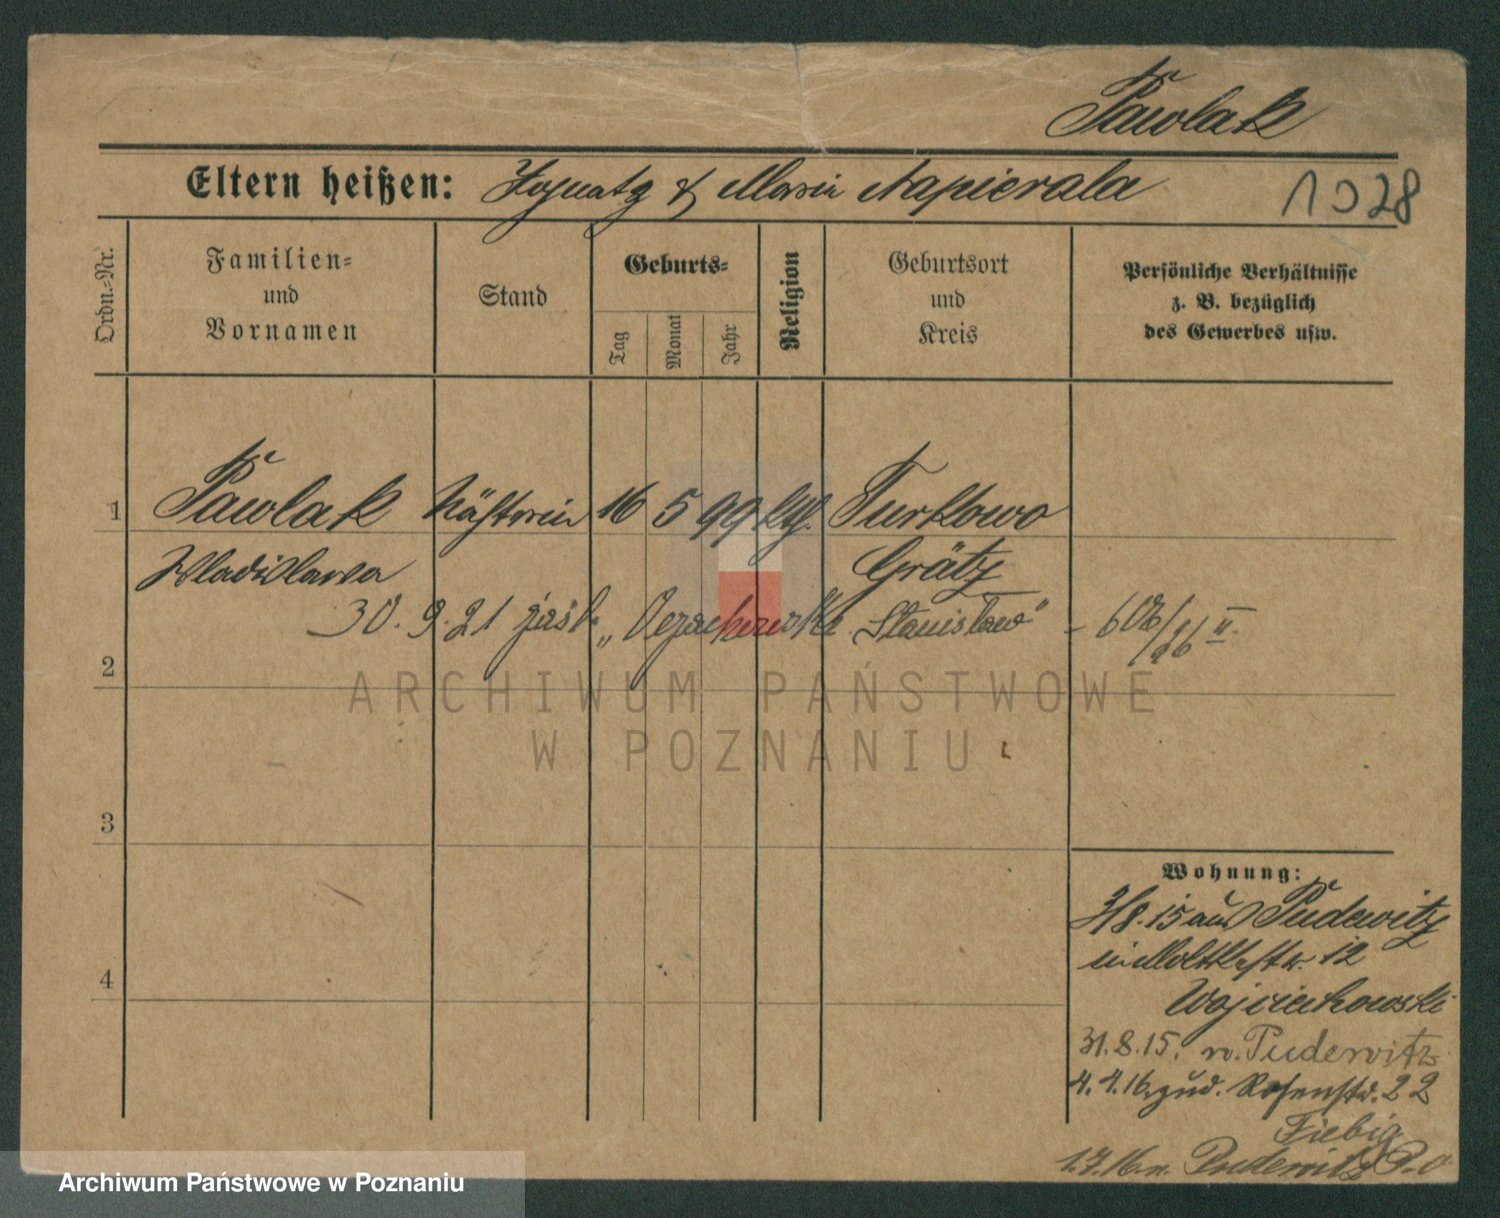 Pawlak
Eltern heißen: Ignatz & Maria Napierala
1328
Ordn.-Nr.
Familien-
und
Vornamen
Stand
Geburts-
Tag
Monat
Jahr
Religion
Geburtsort
und
Kreis
Persönliche Verhältnisse
z. B. bezüglich
des Gewerbes usw.
1 Pawlak Nähterin 16 5 99 ktl. Turkowo
Wladislawa Grätz
30. 9. 21 zaśl. Stanisław" - 606/26 II.
2
ARCHIWUM PAŃSTWOWE
W POZNANIU
3
Wohnung:
3/8. 15 aus Pudewitz
in Moltkestr. 12
Wojciechowski
4
31. 8. 15. n. Pudewitz
4. 4. 16 zud. Rosenstr. 22
Fiebig
1. 7. 16 n. Pudewitz
Archiwum Państwowe w Poznaniu